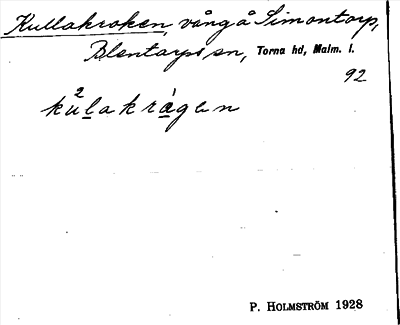 Kullakroken, vång å Simontorp,
Blentarps sn, Torna hd, Malm. l.
92
kúlakrágen
P. HOLMSTRÖM 1928